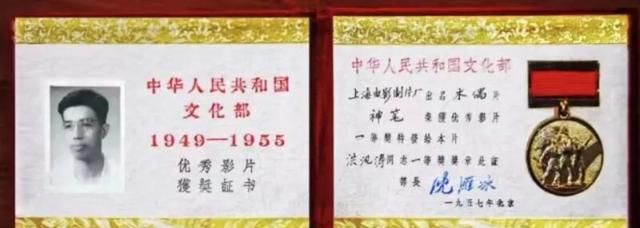 中华人民共和国
文化部
1949—1955
优秀影片
獲奨証书
中华人民共和国文化部
上海电影制片厂出品木偶片
神笔 荣獲优秀影片
一等奨特發給本片
洪汛涛同志一等奨奨章此証
部長 沈雁冰
一九五七年北京